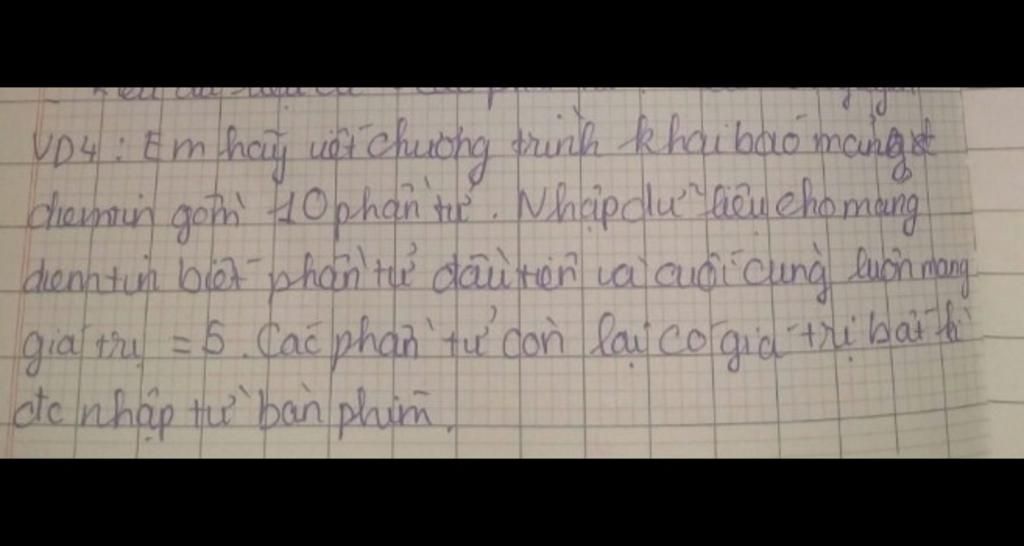 VD4: Em hãy viết chương trình khai báo mảng
diemtin gồm 10 phần tử. Nhập dữ liệu cho mảng
diemtin biết phần tử đầu tiên và cuối cùng luôn mang
giá trị = 5. Các phần tử còn lại có giá trị bất kì
đc nhập từ bàn phím.